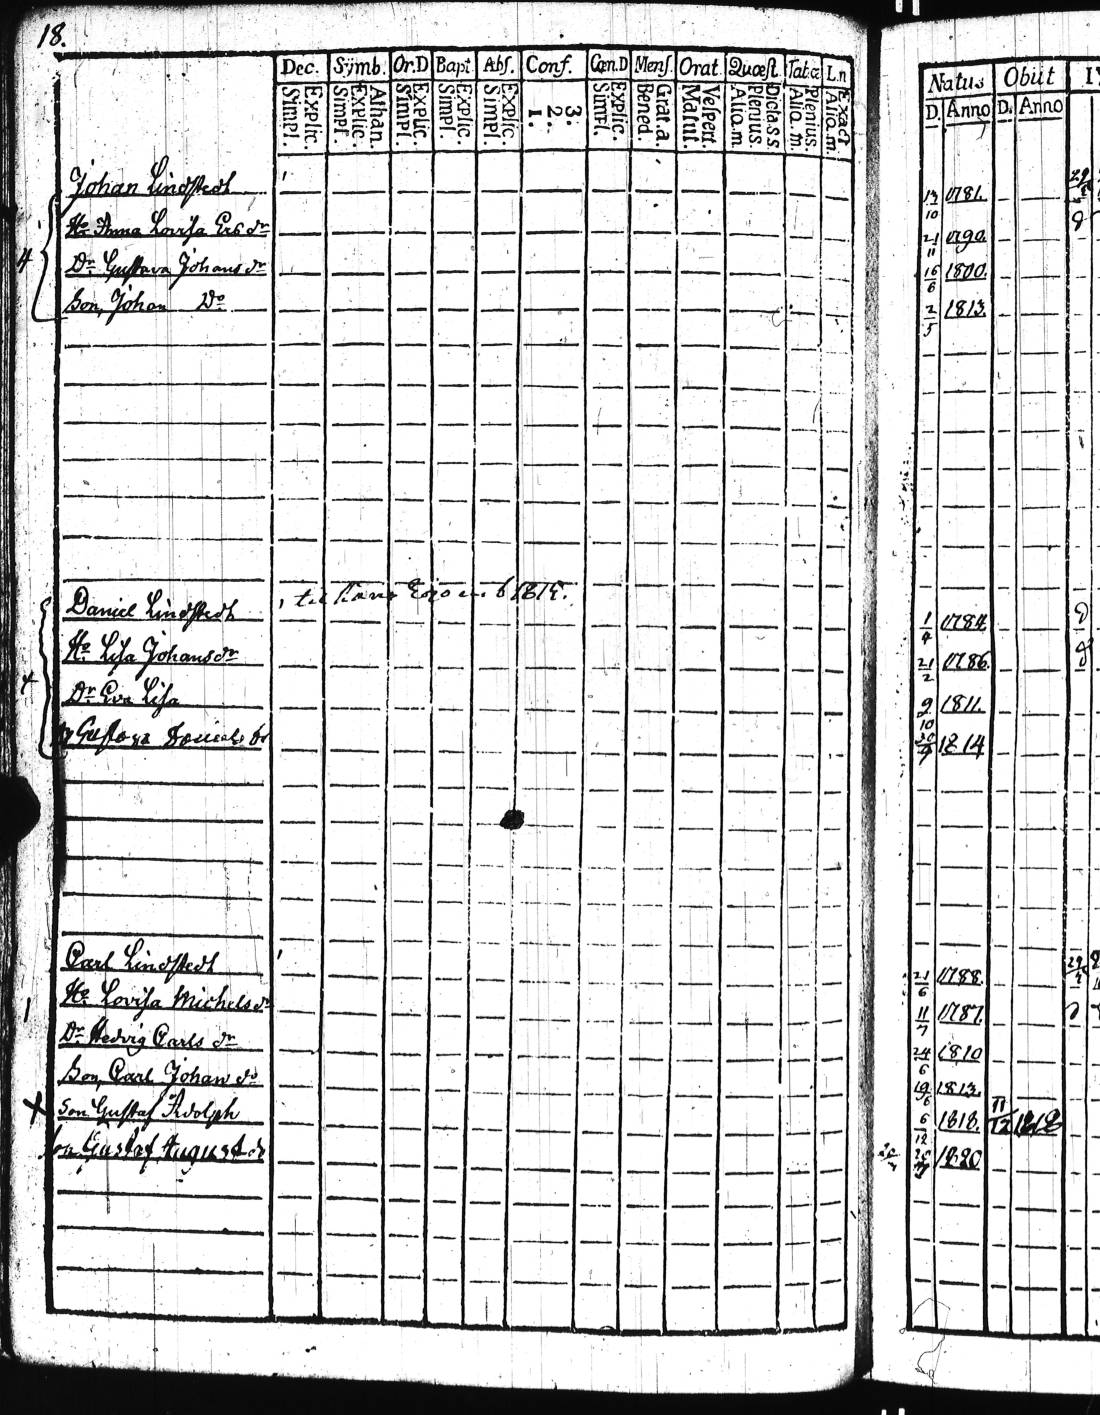 18.
Dec. Symb. Or.D Bapt. Abs. Conf. Cœn.D Mens. Orat. Quæst. Tab.œ L.n
Simpl. Explic. Simpl. Explic. Athan. Simpl. Explic. Simpl. Explic. Simpl. Explic. 1. 2. 3. Simpl. Explic. Bened. Grat.a. Matut. Vespert. Aliq.m. Plenius. Dicta SS Aliq.m. Plenius. Aliq.m. Exact
Natus Obiit
D. Anno D. Anno
Johan Lindstedt 13/10 1781.
H:o Anna Lovisa Ers dr 21/11 1790.
4 Dr Gustava Johans dr 16/6 1800.
Son, Johan Do 2/5 1813.
Daniel Lindstedt 1815. 1/4 1784.
H:o Lisa Johans dr 21/2 1786.
Dr Eva Lisa 9/10 1811.
Gustava Daniels dr 30/9 1814
Carl Lindstedt 21/6 1788.
H:o Lovisa Michels dr 11/7 1787.
Dr Hedvig Carls dr 24/6 1810
Son, Carl Johan do 19/6 1813.
Son Gustaf Adolph 6/12 1818. 11/12 1818
Son Gustaf August do 1820